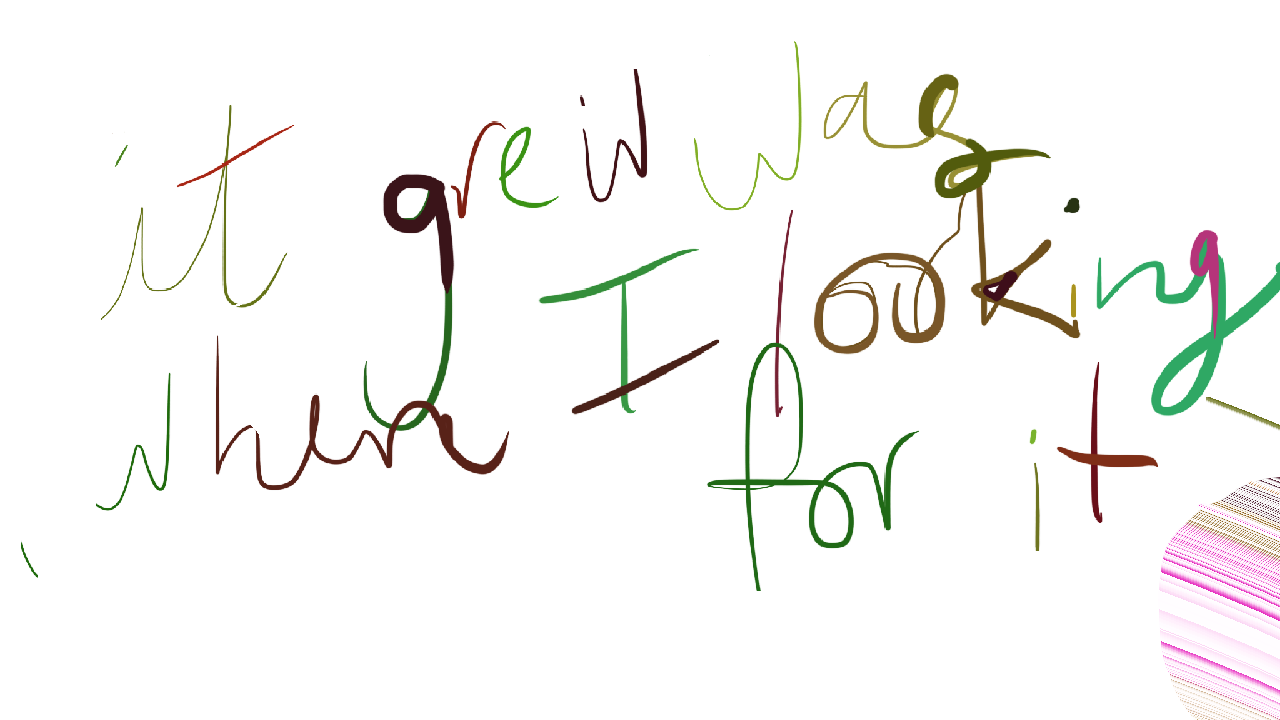 it grew was
when I looking
for it